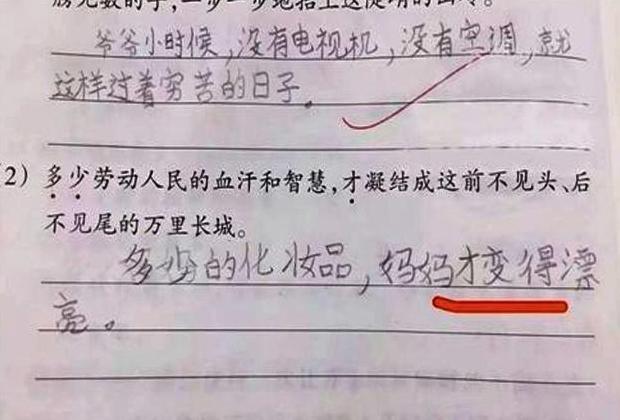 爷爷小时候,没有电视机,没有空调,就
这样过着穷苦的日子。
2) 多少劳动人民的血汗和智慧,才凝结成这前不见头、后
不见尾的万里长城。
多少的化妆品,妈妈才变得漂
亮。